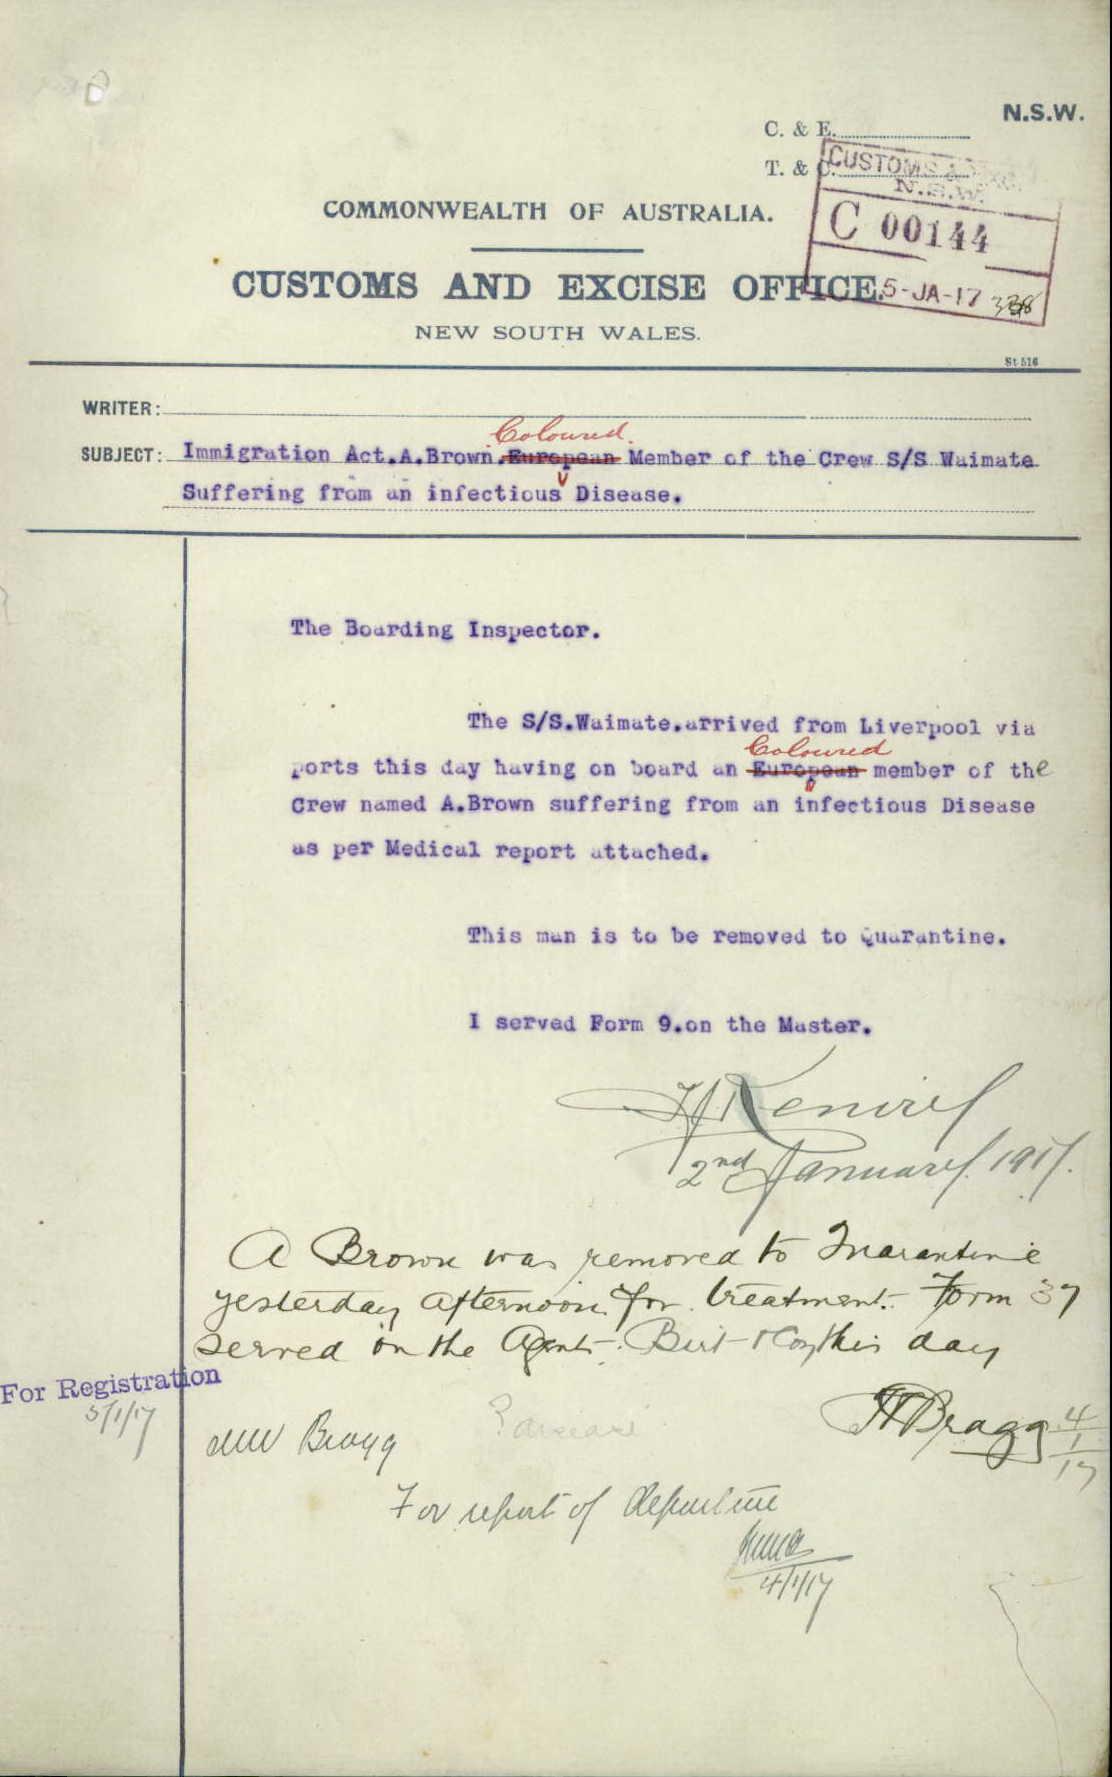 N.S.W.
C. & E.
T. & C.
CUSTOMS &
N.S.W.
C 00144
5-JA-17
COMMONWEALTH OF AUSTRALIA.
CUSTOMS AND EXCISE OFFICE,
NEW SOUTH WALES.
St.516
WRITER:
Coloured.
SUBJECT: Immigration Act.A.Brown.European Member of the Crew S/S Waimate
Suffering from an infectious Disease.
The Boarding Inspector.
The S/S.Waimate.arrived from Liverpool via
Coloured
ports this day having on board an European member of the
Crew named A.Brown suffering from an infectious Disease
as per Medical report attached.
This man is to be removed to Quarantine.
I served Form 9.on the Master.
2nd January. 1917.
A Brown was removed to Quarantine
yesterday afternoon for treatment. Form 37
served on the Agents. Birt & Coy this day
For Registration
5/1/17
HBragg 4/1/17
Mr Bragg
For report of departure
4/1/17